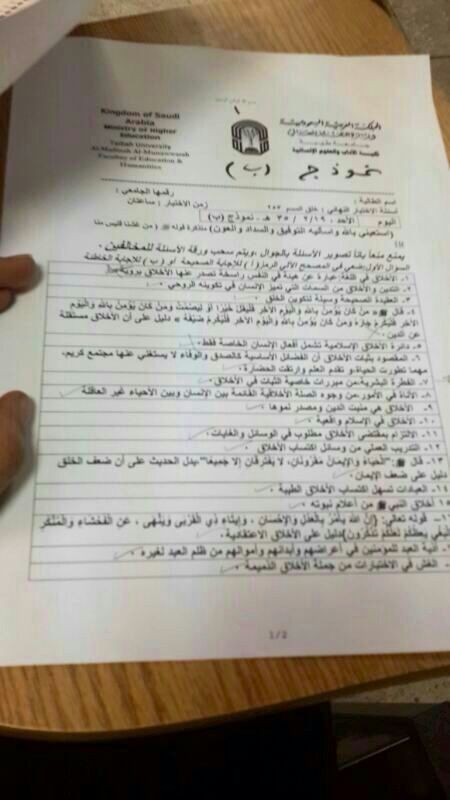 Kingdom of Saudi
Arabia
Ministry of Higher
Education
Taibah University
Al-Madinah Al-Munawwarah
Faculty of Education &
Humanities
المملكة العربية السعودية
كلية الآداب والعلوم الإنسانية
نموذج (ب)
اسم الطالبة : رقمها الجامعي :
أسئلة الاختبار النهائي : خلق زمن الاختبار : ساعتان
اليوم الأحد، ٣٥ / ٢ / ١٩ هـ - نموذج (ب)
(استعيني بالله واساليه التوفيق والسداد والعون) متذكرة قوله ﷺ ( من غشنا فليس منا
يمنع منعاً باتاً تصوير الأسئلة بالجوال، ويتم سحب ورقة الأسئلة للمخالفين.
السؤال الأول: ضعي في المصحح الآلي الرمز ( أ ) للإجابة الصحيحة أو ( ب ) للإجابة الخاطئة
١- الأخلاق في اللغة: عبارة عن هيئة في النفس راسخة تصدر عنها الأخلاق بروية
٢- التدين والأخلاق من السمات التي تميز الإنسان في تكوينه الروحي
٣- العقيدة الصحيحة وسيلة لتكوين الخلق
٤- قال ﷺ « من كان يؤمن بالله واليوم الآخر فليقل خيرا أو ليصمت ومن كان يؤمن بالله واليوم
الآخر فليكرم جاره ومن كان يؤمن بالله واليوم الآخر فليكرم ضيفه » دليل على أن الأخلاق مستقلة
عن الدين.
٥- دائرة الأخلاق الإسلامية تشمل أفعال الإنسان الخاصة فقط.
٦- المقصود بثبات الأخلاق أن الفضائل الأساسية كالصدق والوفاء لا يستغني عنها مجتمع كريم،
مهما تطورت الحياة و تقدم العلم وارتقت الحضارة.
٧- الفطرة البشرية من مبررات خاصية الثبات في الأخلاق
٨- الأناة في الأمور من وجوه الصلة الأخلاقية القائمة بين الإنسان وبين الأحياء غير العاقلة
٩- الأخلاق هي منبت الدين ومصدر نموها
١٠- الأخلاق في الإسلام واقعية
١١- الالتزام بمقتضى الأخلاق مطلوب في الوسائل والغايات.
١٢- التدريب العملي من وسائل اكتساب الأخلاق
١٣- قال ﷺ: "الحياء والإيمان مقرونان، لا يفترقان إلا جميعا" يدل الحديث على أن ضعف الخلق
دليل على ضعف الإيمان.
١٤- العبادات تسهل اكتساب الأخلاق الطيبة
١٥ أخلاق النبي ﷺ من أعلام نبوته
قوله تعالى: (إن الله يأمر بالعدل والإحسان ، وإيتاء ذي القربى وينهى ، عن الفحشاء والمنكر
البغي يعظكم لعلكم تذكرون) دليل على الأخلاق الاعتقادية.
أذية العبد للمؤمنين في أعراضهم وأبدانهم وأموالهم من ظلم العبد لغيره
الغش في الاختبارات من جملة الأخلاق الذميمة
1/2